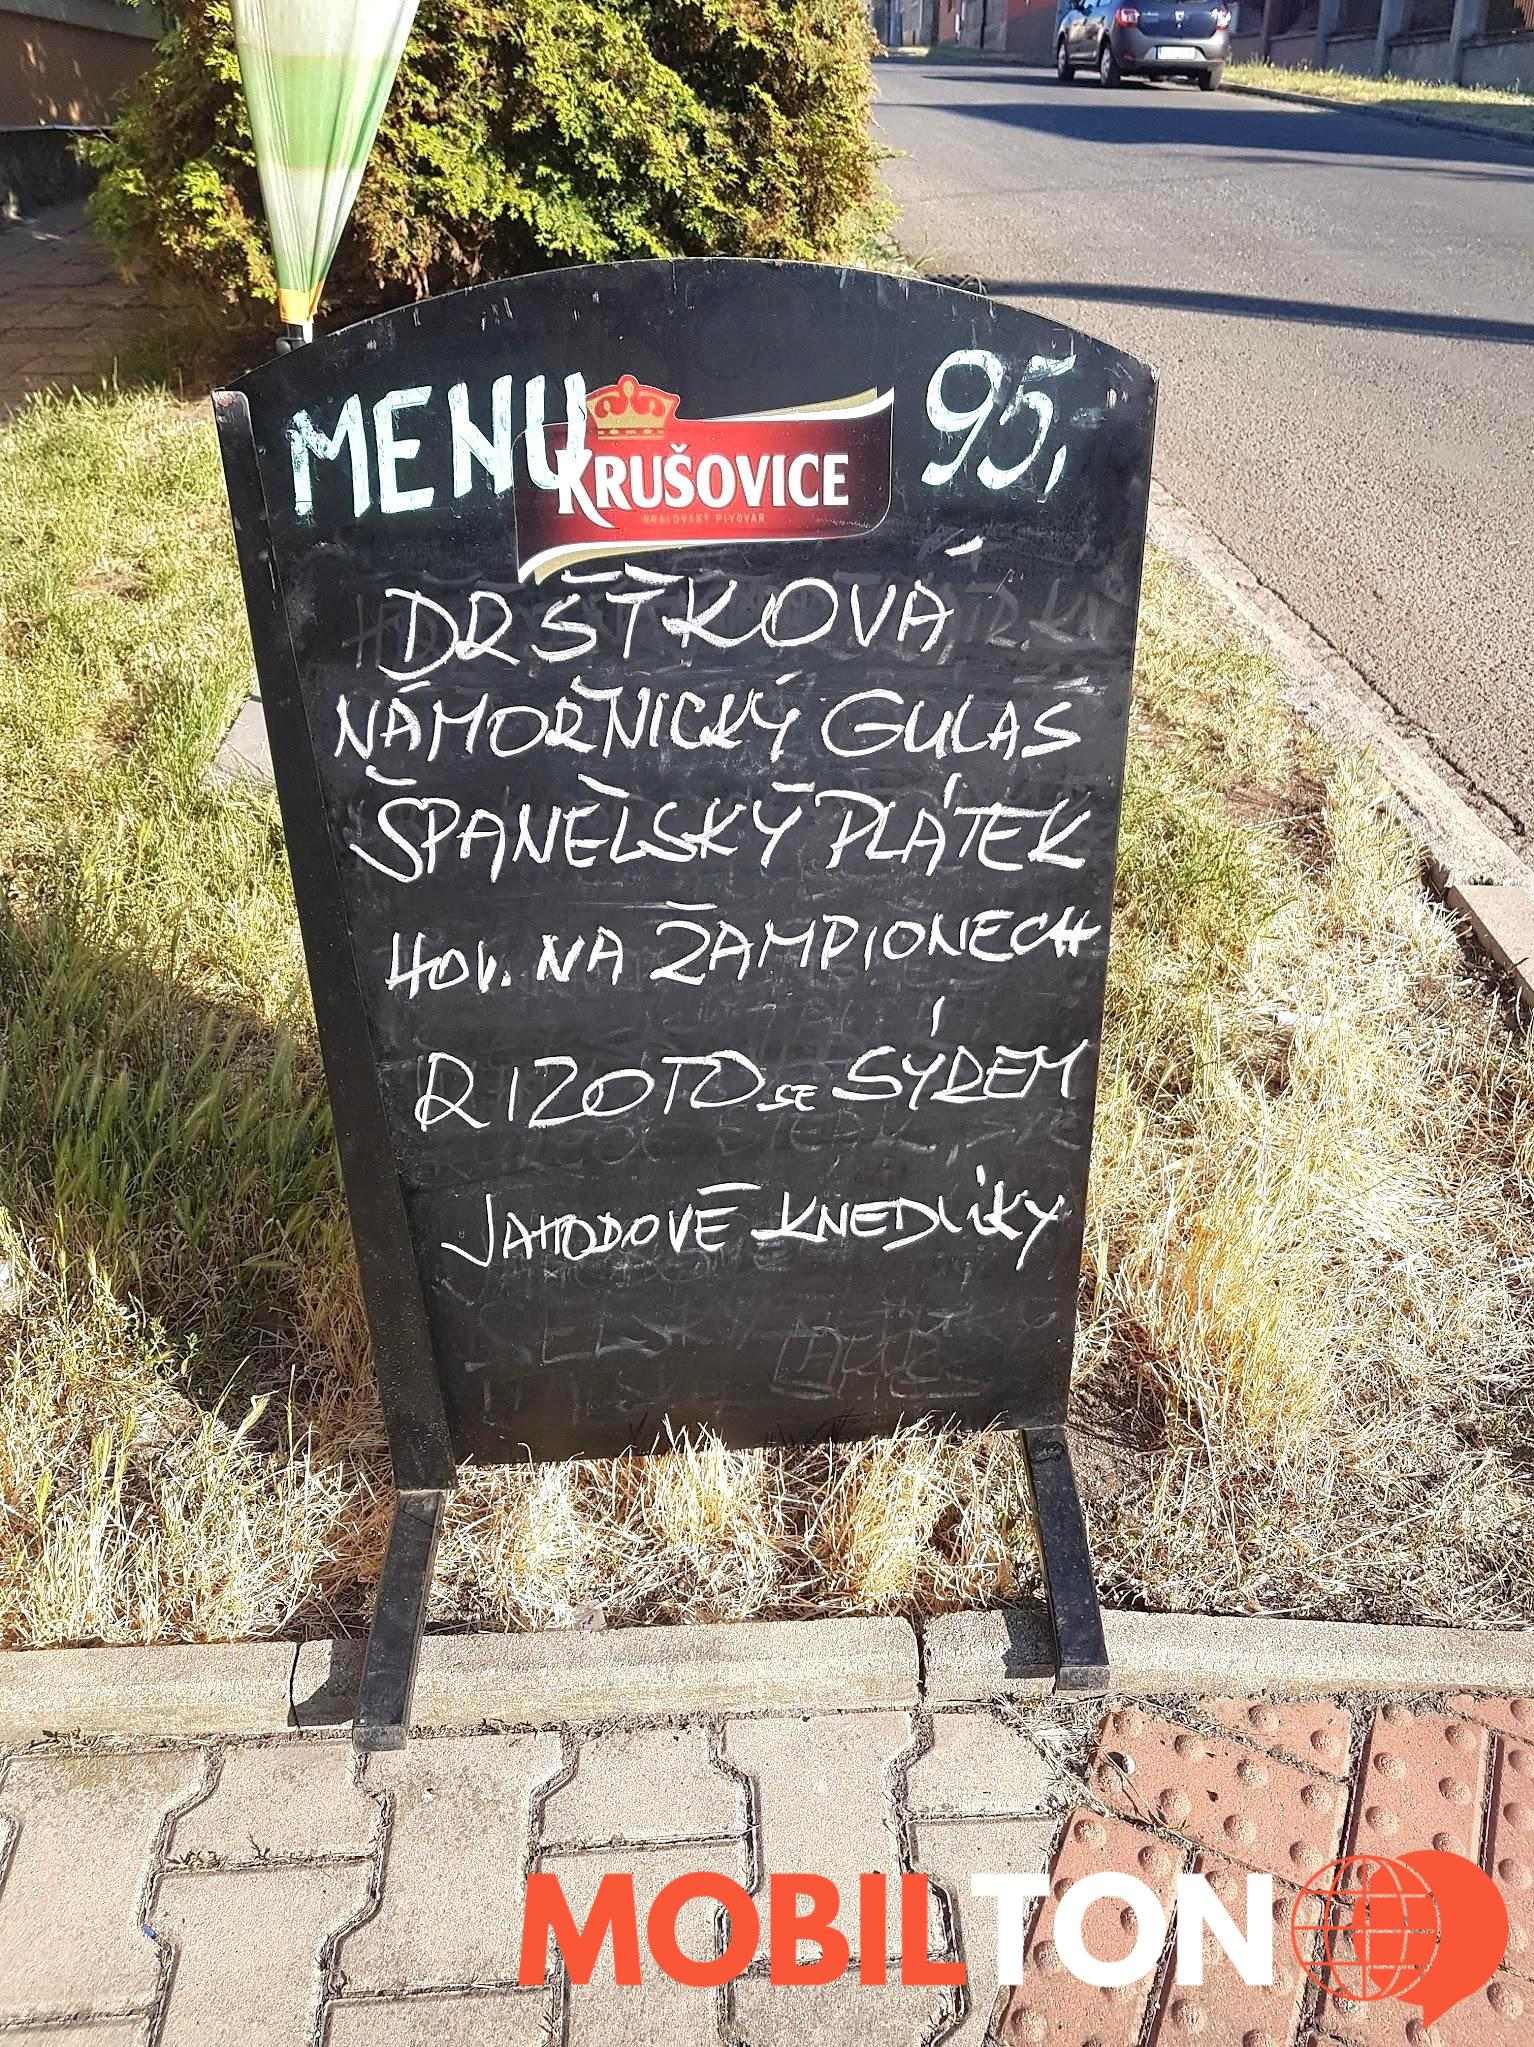 MENU 95,-
KRUŠOVICE
KRÁLOVSKÝ PIVOVAR
DRŠŤKOVÁ
NÁMOŘNICKÝ GULÁŠ
ŠPANĚLSKÝ PLÁTEK
HOV. NA ŽAMPIONECH
RIZOTO SE SÝREM
JAHODOVÉ KNEDLÍKY
MOBILTON